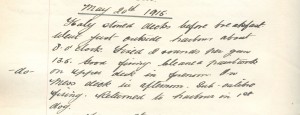 May 20th 1915
Early closed decks before breakfast
when just outside harbour about
8 o'clock. Fired 2 rounds per gun
135. Good firing cleaned
on upper deck in forenoon
-do- Mess deck in afternoon. Sub-calibre
firing. Returned to harbour in 1st
dog.